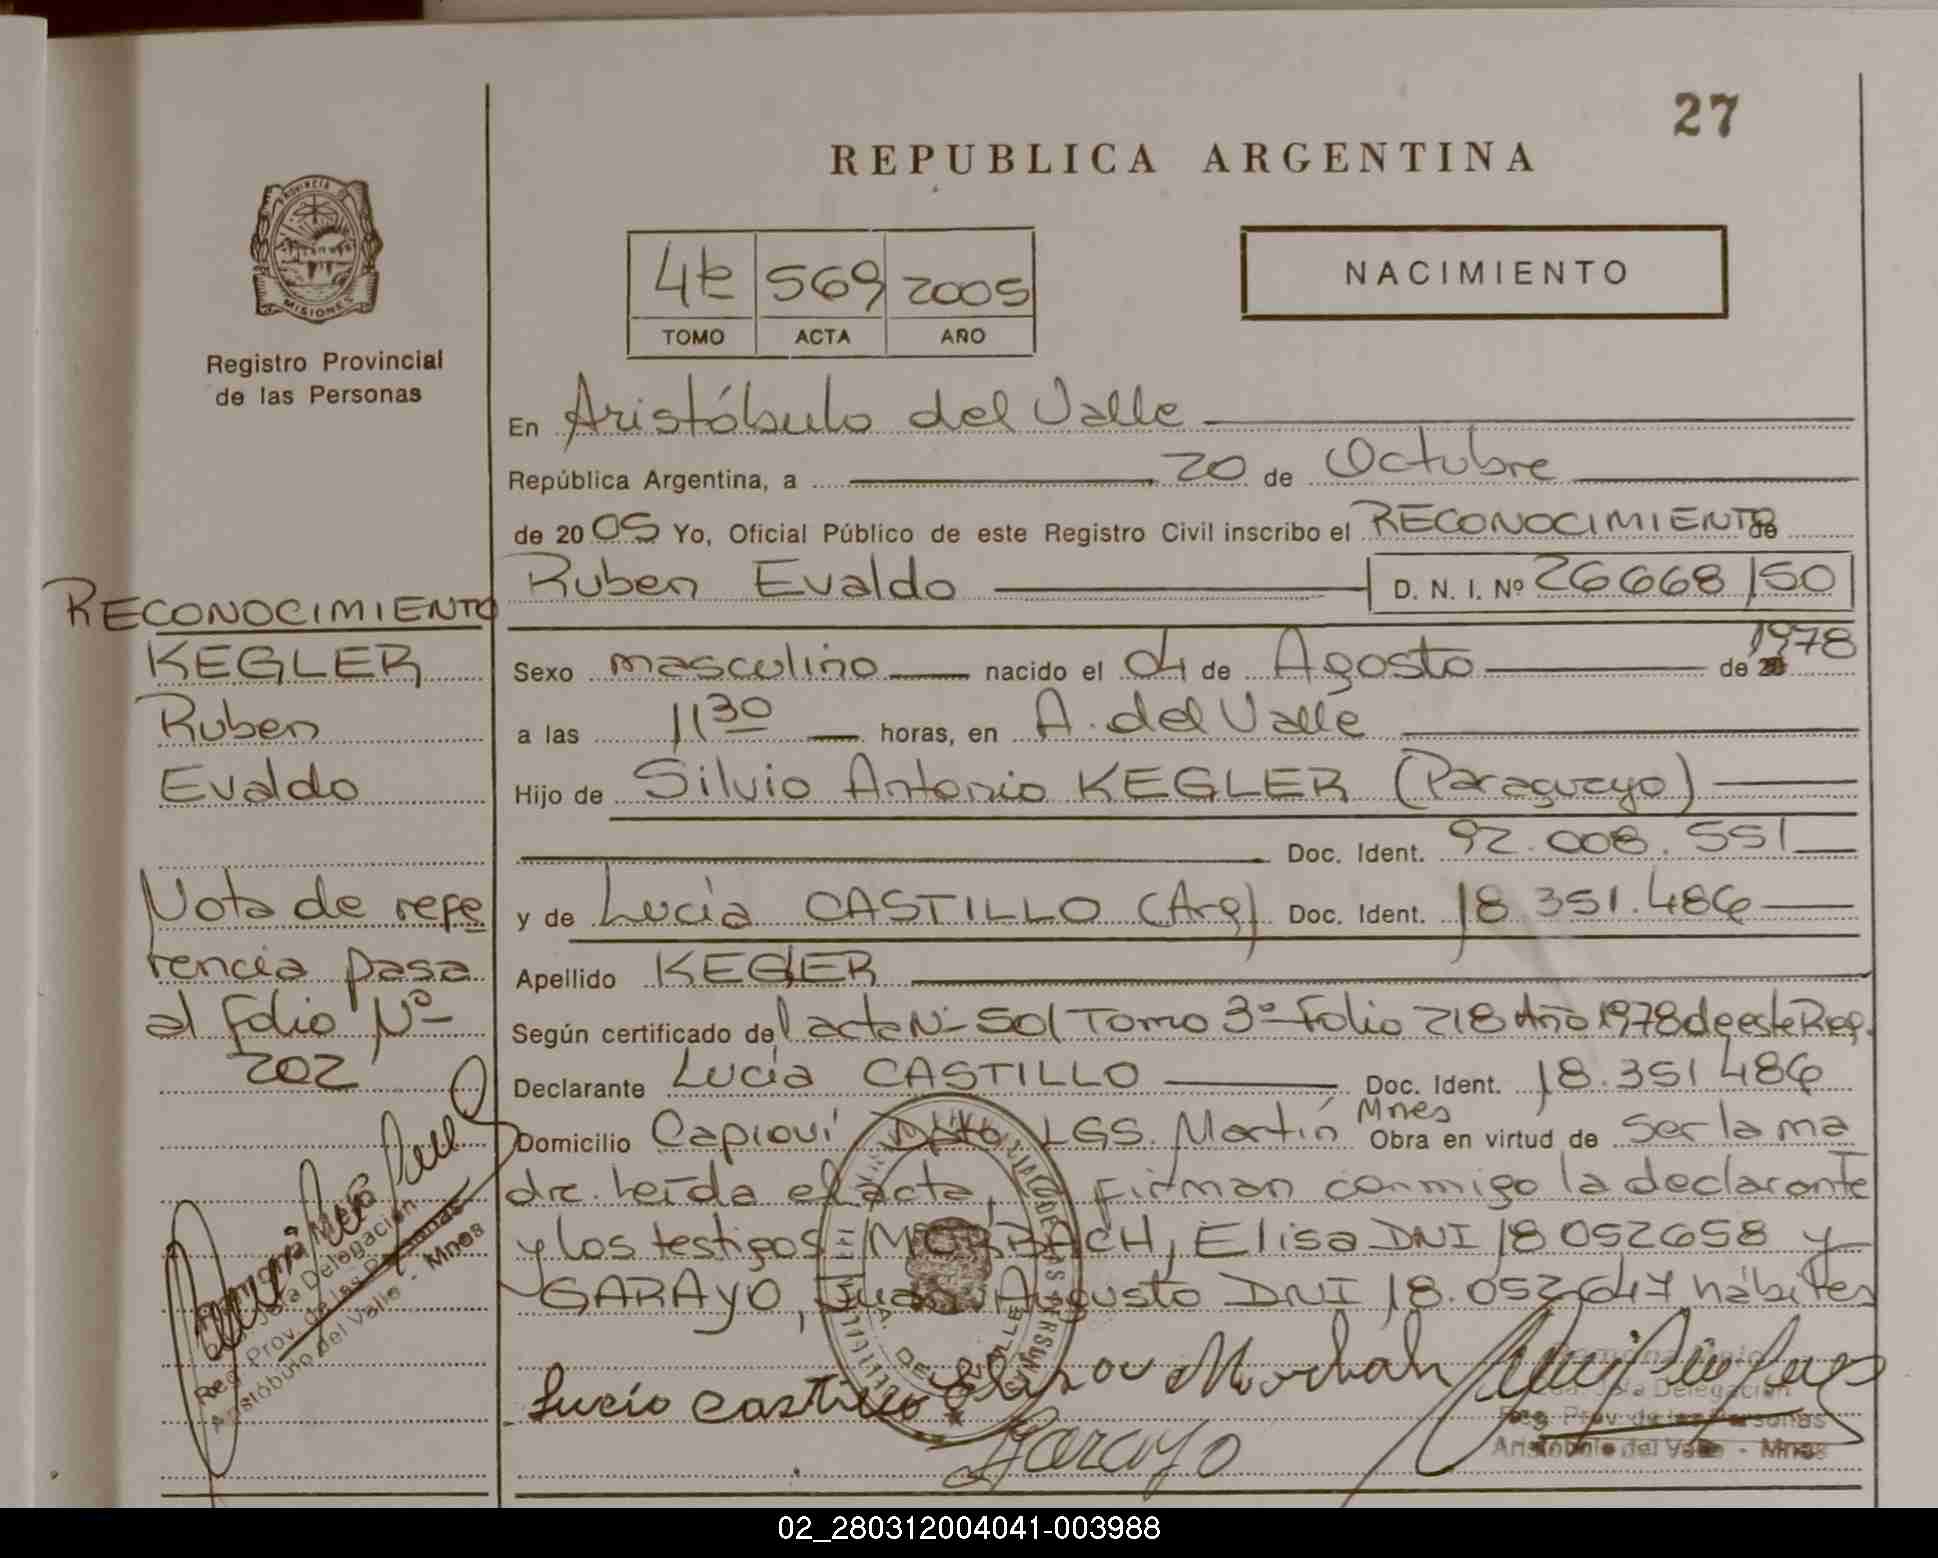 27
REPUBLICA ARGENTINA
PROVINCIA DE
MISIONES
Registro Provincial
de las Personas
569 2005
TOMO ACTA AÑO
NACIMIENTO
En Aristóbulo del Valle
República Argentina, a 20 de Octubre
de 2005 Yo, Oficial Público de este Registro Civil inscribo el RECONOCIMIENTO de
Ruben Evaldo D. N. I. Nº 26668150
Sexo masculino nacido el 04 de Agosto de 1978
a las 11 30 horas, en A. del Valle
Hijo de Silvio Antonio KEGLER (Paraguayo)
Doc. Ident. 92.008.551
y de Lucia CASTILLO (Arg) Doc. Ident. 18.351.486
Apellido KEGLER
Según certificado del acta Nº 501 Tomo 3º Folio 218 Año 1978 de este Reg.
Declarante Lucia CASTILLO Doc. Ident. 18.351.486
Domicilio Capioví Dpto LGS. Martín Mnes Obra en virtud de ser la ma
dre. Leída el acta, la firman conmigo la declarante
y los testigos MORBACH, Elisa DNI 18052658 y
GARAYO, Juan Augusto DNI 18.052.647 hábiles
RECONOCIMIENTO
KEGLER
Ruben
Evaldo
Nota de refe
rencia pasa
al folio Nº
202
Jefa Delegación
Reg. Prov. de las Personas
Aristóbulo del Valle - Mnes
Lucia Castillo Elisa Morbach
Garayo
Jefa Delegación
Reg. Prov. de las Personas
Aristóbulo del Valle - Mnes
02_280312004041-003988